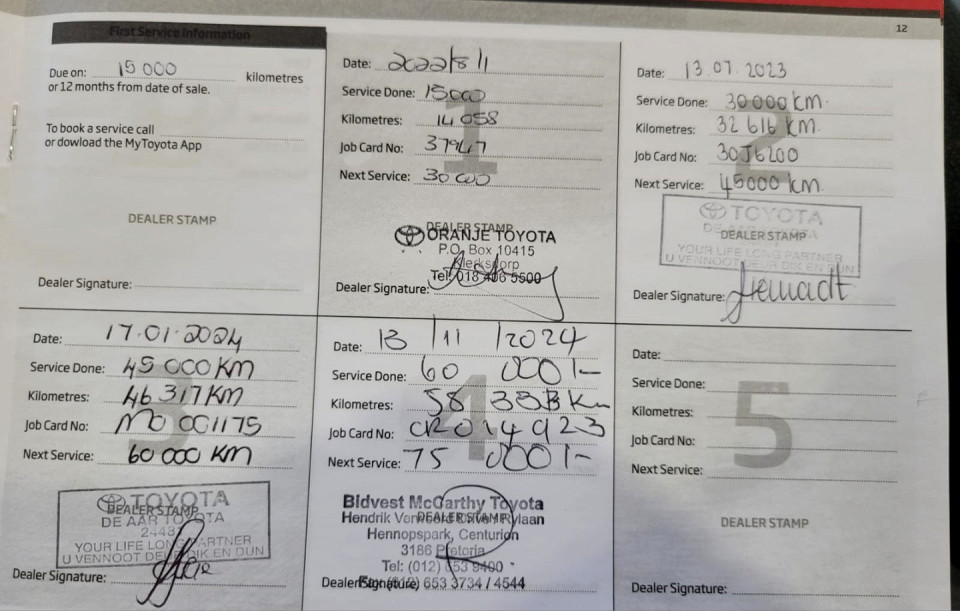 12
First Service Information
Due on: 15 000 kilometres
or 12 months from date of sale.
To book a service call
or dowload the MyToyota App
DEALER STAMP
Dealer Signature:
1
Date: 2022/8/11
Service Done: 15000
Kilometres: 14 058
Job Card No: 37947
Next Service: 30 000
DEALER STAMP
ORANJE TOYOTA
P.O. Box 10415
Klerksdorp
Tel: 018 406 5500
Dealer Signature:
2
Date: 13.07.2023
Service Done: 30 000 km.
Kilometres: 32 616 km.
Job Card No: 30J6200
Next Service: 45000 km.
TOYOTA
DEALER STAMP
DE AAR TOYOTA
YOUR LIFE LONG PARTNER
U VENNOOT DEUR DIK EN DUN
Dealer Signature:
3
Date: 17.01.2024
Service Done: 45 000 KM
Kilometres: 46 317 KM
Job Card No: M0 001175
Next Service: 60 000 KM
TOYOTA
DEALER STAMP
DE AAR TOYOTA
YOUR LIFE LONG PARTNER
U VENNOOT DEUR DIK EN DUN
Dealer Signature:
4
Date: 13/11/2024
Service Done: 60 000 /-
Kilometres: 58 333 Km
Job Card No: CR014923
Next Service: 75 000 /-
Bidvest McCarthy Toyota
DEALER STAMP
Hendrik Verwoerd
Hennopspark, Centurion
3186 Pretoria
Tel: (012) 653 9400
Dealer Signature:
Fax: (012) 653 3734 / 4544
5
Date:
Service Done:
Kilometres:
Job Card No:
Next Service:
DEALER STAMP
Dealer Signature: